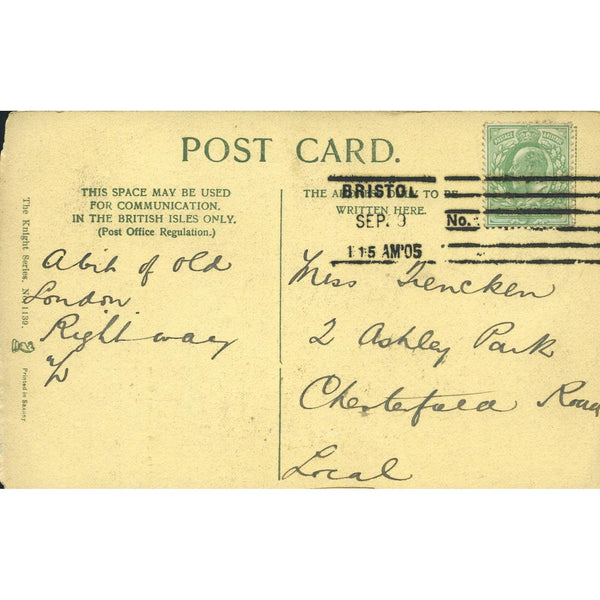 POST CARD.
THIS SPACE MAY BE USED
FOR COMMUNICATION,
IN THE BRITISH ISLES ONLY.
(Post Office Regulation.)
THE ADDRESS ONLY TO BE
WRITTEN HERE.
BRISTOL
SEP. 9
No.
1 15 AM '05
A bit of old
London
Right way
Miss Trencken
2 Ashley Park
Chesterfield Road
Local
The Knight Series, No. 1139.
Printed in Saxony